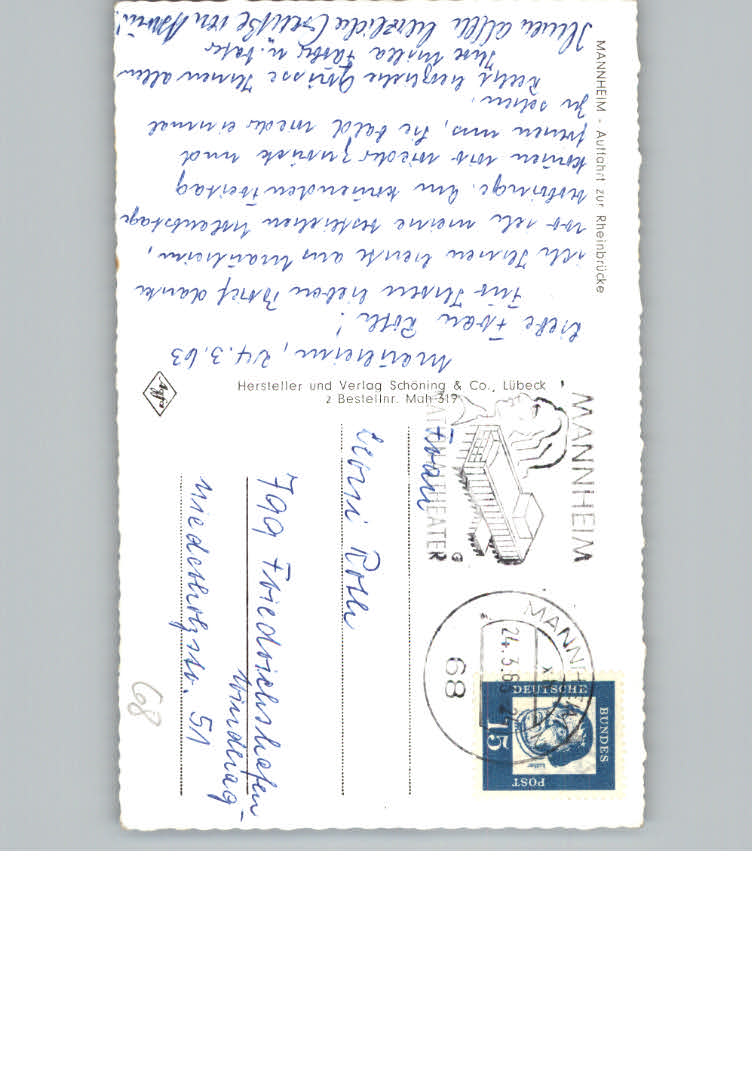 MANNHEIM - Auffahrt zur Rheinbrücke
Mannheim, 24.3.63
Liebe Frau Roth!
Für Ihren lieben Brief danke
ich Ihnen heute aus Mannheim,
wo ich meine restlichen Urlaubstage
verbringe. Am kommenden Freitag
kommen wir wieder zurück und
freuen uns, Sie bald wieder einmal
zu sehen.
Recht herzliche Grüsse Ihnen allen
Ihre Milla u. Vater
Ihnen allen herzliche Grüße von
Agfa
Hersteller und Verlag Schöning & Co., Lübeck
z Bestellnr. Mah 319
MANNHEIM
NATIONALTHEATER
G
MANNHEIM
24.3.63
68
DEUTSCHE
BUNDES
POST
15
Luther
Frau
Roth
799 Friedrichshafen
Windhag
Niederholzstr. 51
68